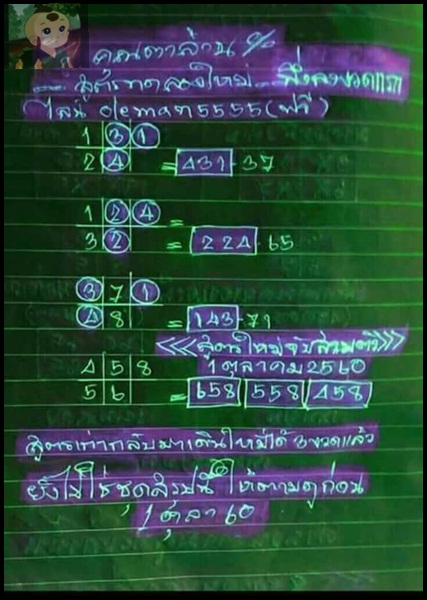 คนตาล้าน %
สูตรทดลองใหม่
ไลน์ oleman5555(ฟรี)
1 3 1
2 4 = 431-37
1 2 4 =
3 2 = 224-65
3 7 1
4 8 = 143-71
<<<สูตรใหม่จับสามตัว>>>
4 5 8 1 ตุลาคม 2560
5 6 = 658 558 458
สูตรเก่ากลับมาเดินใหม่ได้ 3 งวดแล้ว
ยังไม่ใช่ชุดสรุปนี้ ให้ตามดูก่อน
1 ตุลา 60